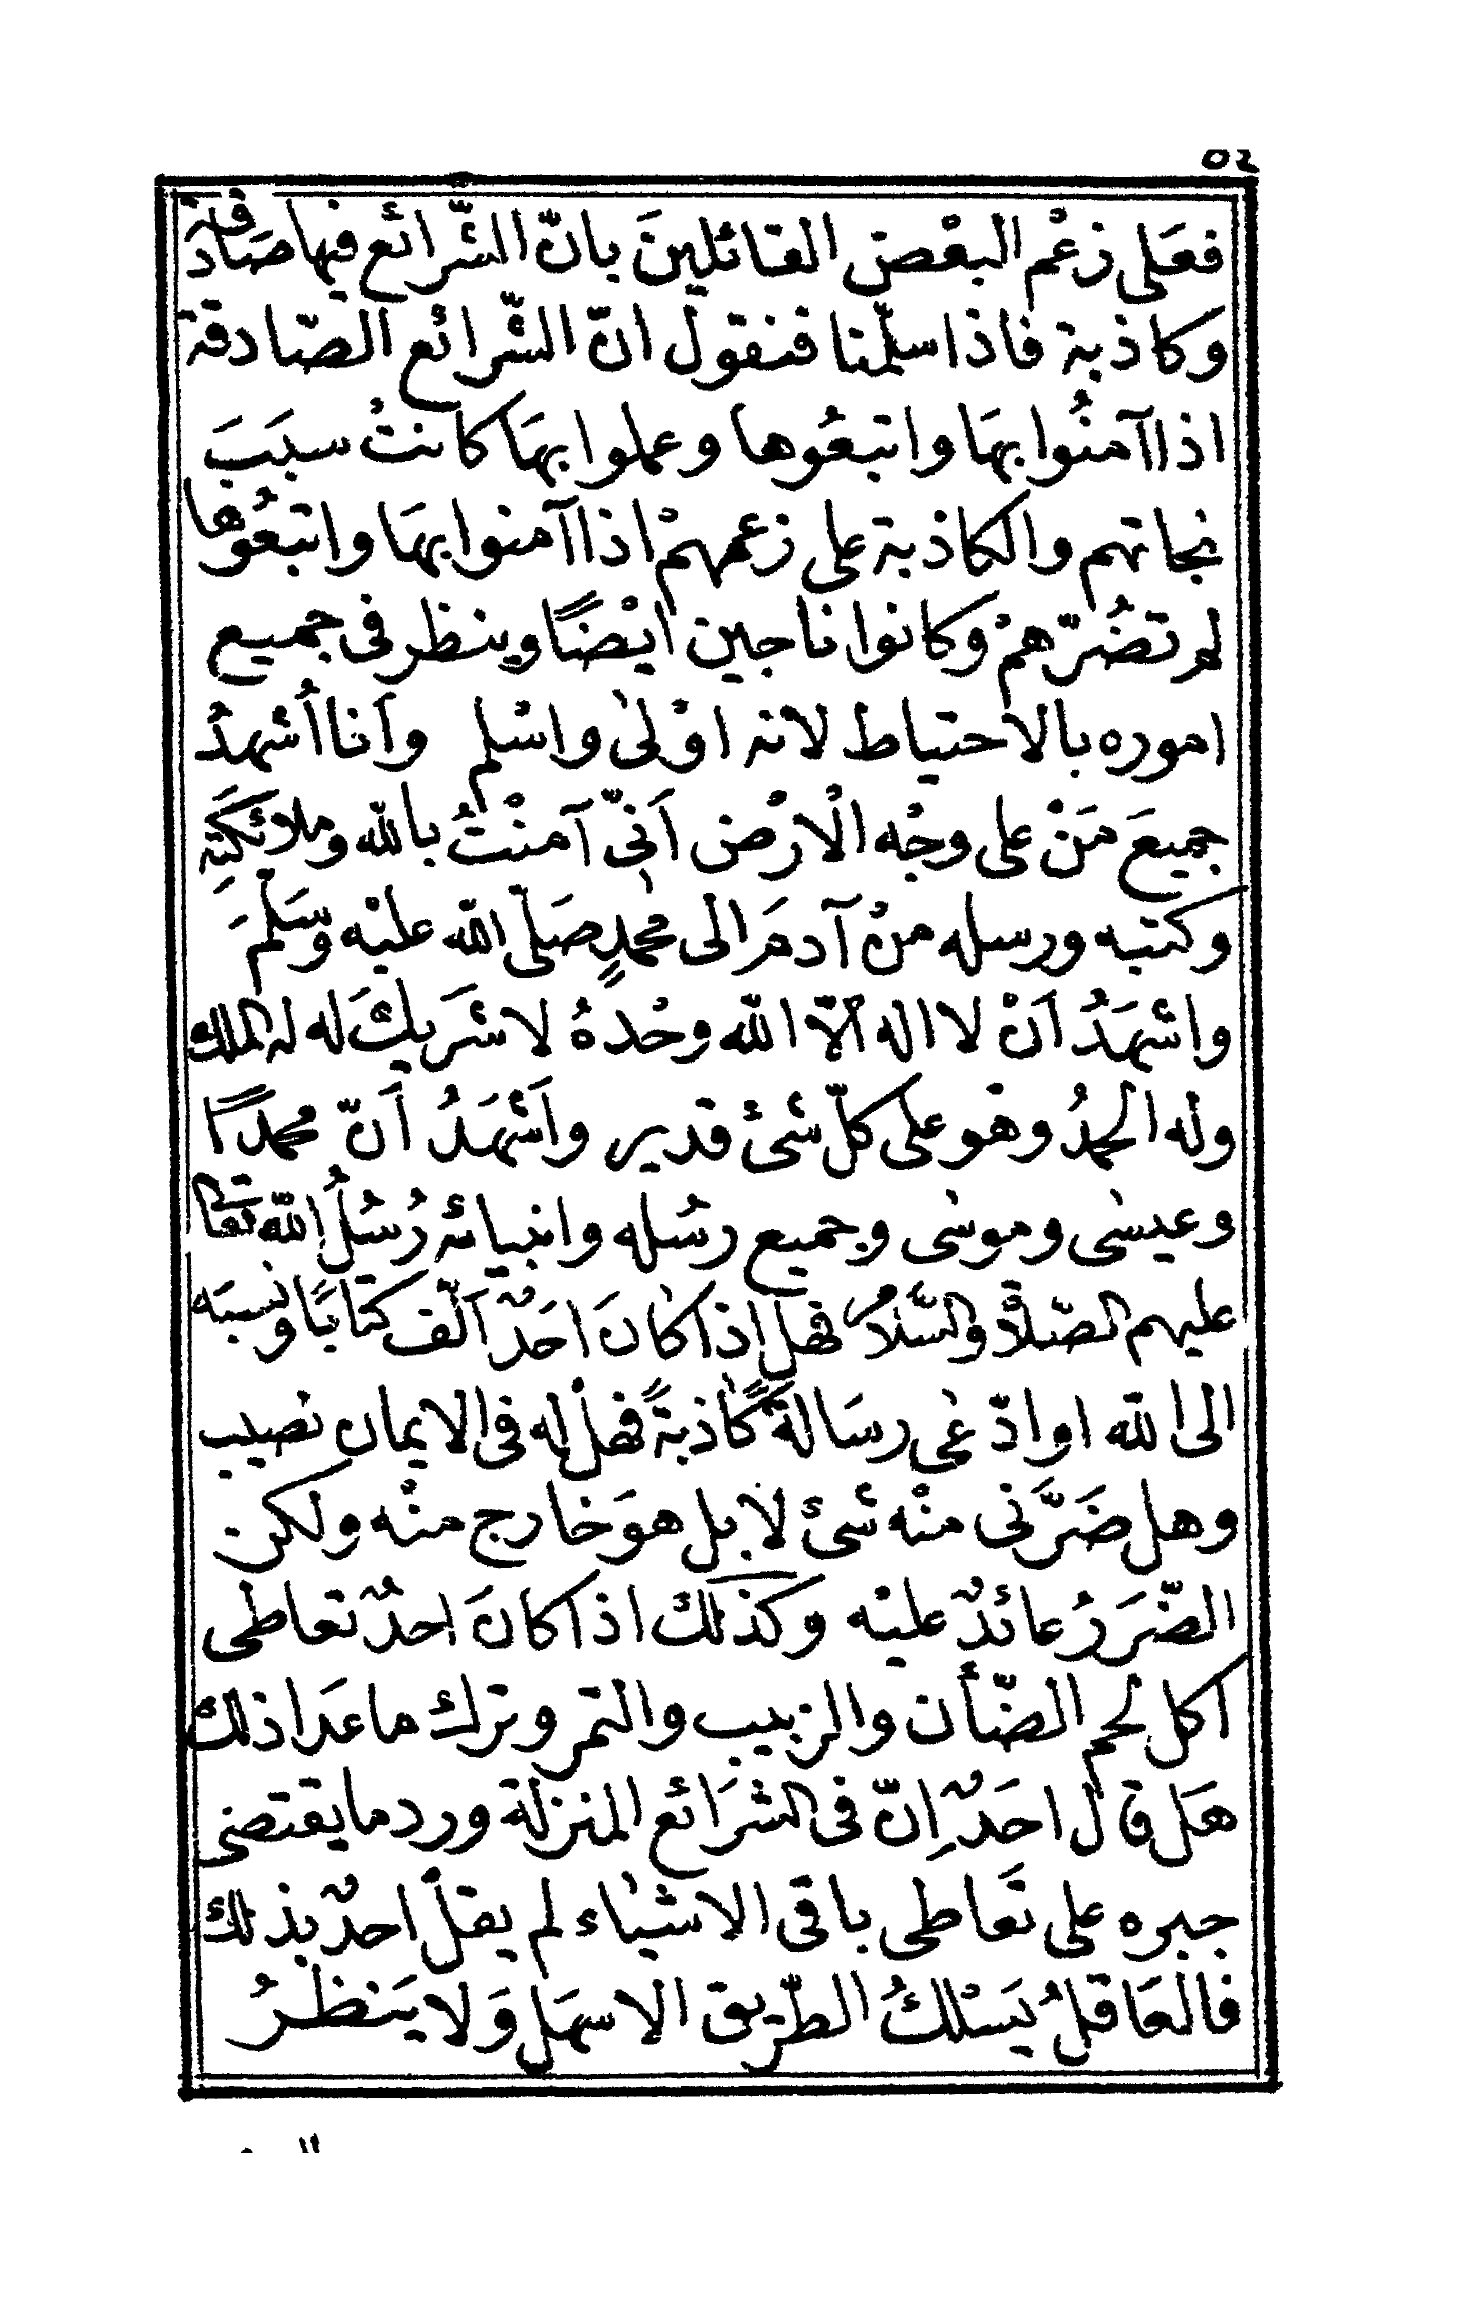 ٥٤
فعَلى زعْم البعْض القائلينَ بانّ الشّرائع فيها صَادقة
وكاذبة فاذا سلّمنا فنقول انّ الشّرائع الصّادقة
اذا آمنُوا بهَا واتبعُوها وعملوا بهَا كانتْ سببَ
نجاتهم والكاذبة على زعمهمْ اذا آمنوا بهَا واتبعُوها
لم تضُرّهمْ وكانوا ناجين ايْضًا وينظر فى جميع
اموره بالاحتياط لانه اوْلىٰ واسْلم وأنا أُشهدُ
جميعَ مَنْ على وجْه الْارْض أَنىّ آمنْتُ بالله وملائكَتِه
وكتبه ورسله منْ آدمَ الى محمدٍ صَلىّ الله عليْه وَسَلمَ
واشهَدُ أَنْ لا اله الّا الله وحْدهُ لا شَريكَ له له الملك
وله الحمدُ وهو على كلّ شئْ قدير واَشْهَدُ أَنّ محمدًا
وعيسٰى وموسٰى وجميع رسُله وانبيائه رُسُلُ الله تعَالى
عليهم الصّلاةُ والسّلامُ فهل إذا كانَ احَدٌ اَلّف كتابًا ونسبَه
الى الله او ادّعٰى رسَالة كاذبةً فهلْ له فى الايمان نصيب
وهل ضَرَّنى منْه شئْ لا بل هوَ خارج منْه ولكن
الضّرَرُ عائدٌ عليْه وكذلك اذا كانَ احدٌ تعاطى
اكل لحم الضّأن والزبيب والتمر وترك ما عَدا ذلك
هَل قال احَدٌ إنّ فى الشرَائع المنزلة ورد ما يقتضى
جبره على تعَاطى باقى الاشيٰاء لم يقلْ احدٌ بذلك
فالعَاقلُ يَسْلكُ الطّريق الاسهَل وَلا يَنظرُ